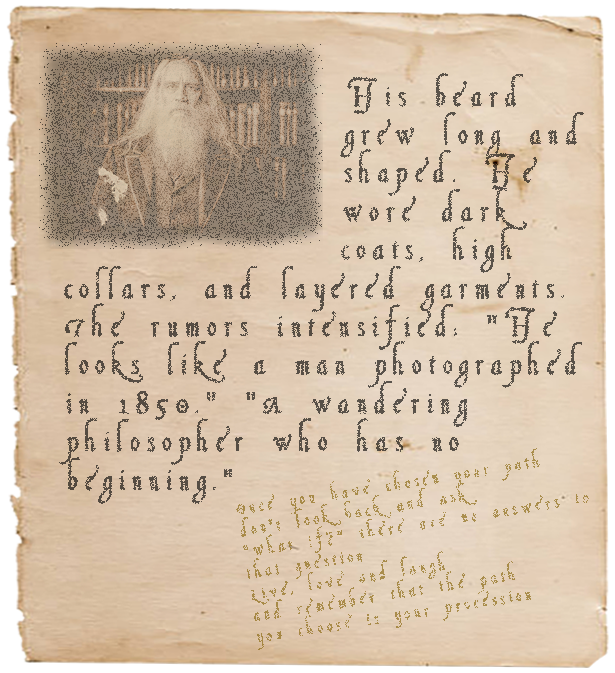 His beard
grew long and
shaped. He
wore dark
coats, high
collars, and layered garments.
The rumors intensified: "He
looks like a man photographed
in 1850." "A wandering
philosopher who has no
beginning."
once you have chosen your path
don't look back and ask
"what if?" there are no answers to
that question
Live, love and laugh
and remember that the path
you choose is your procession